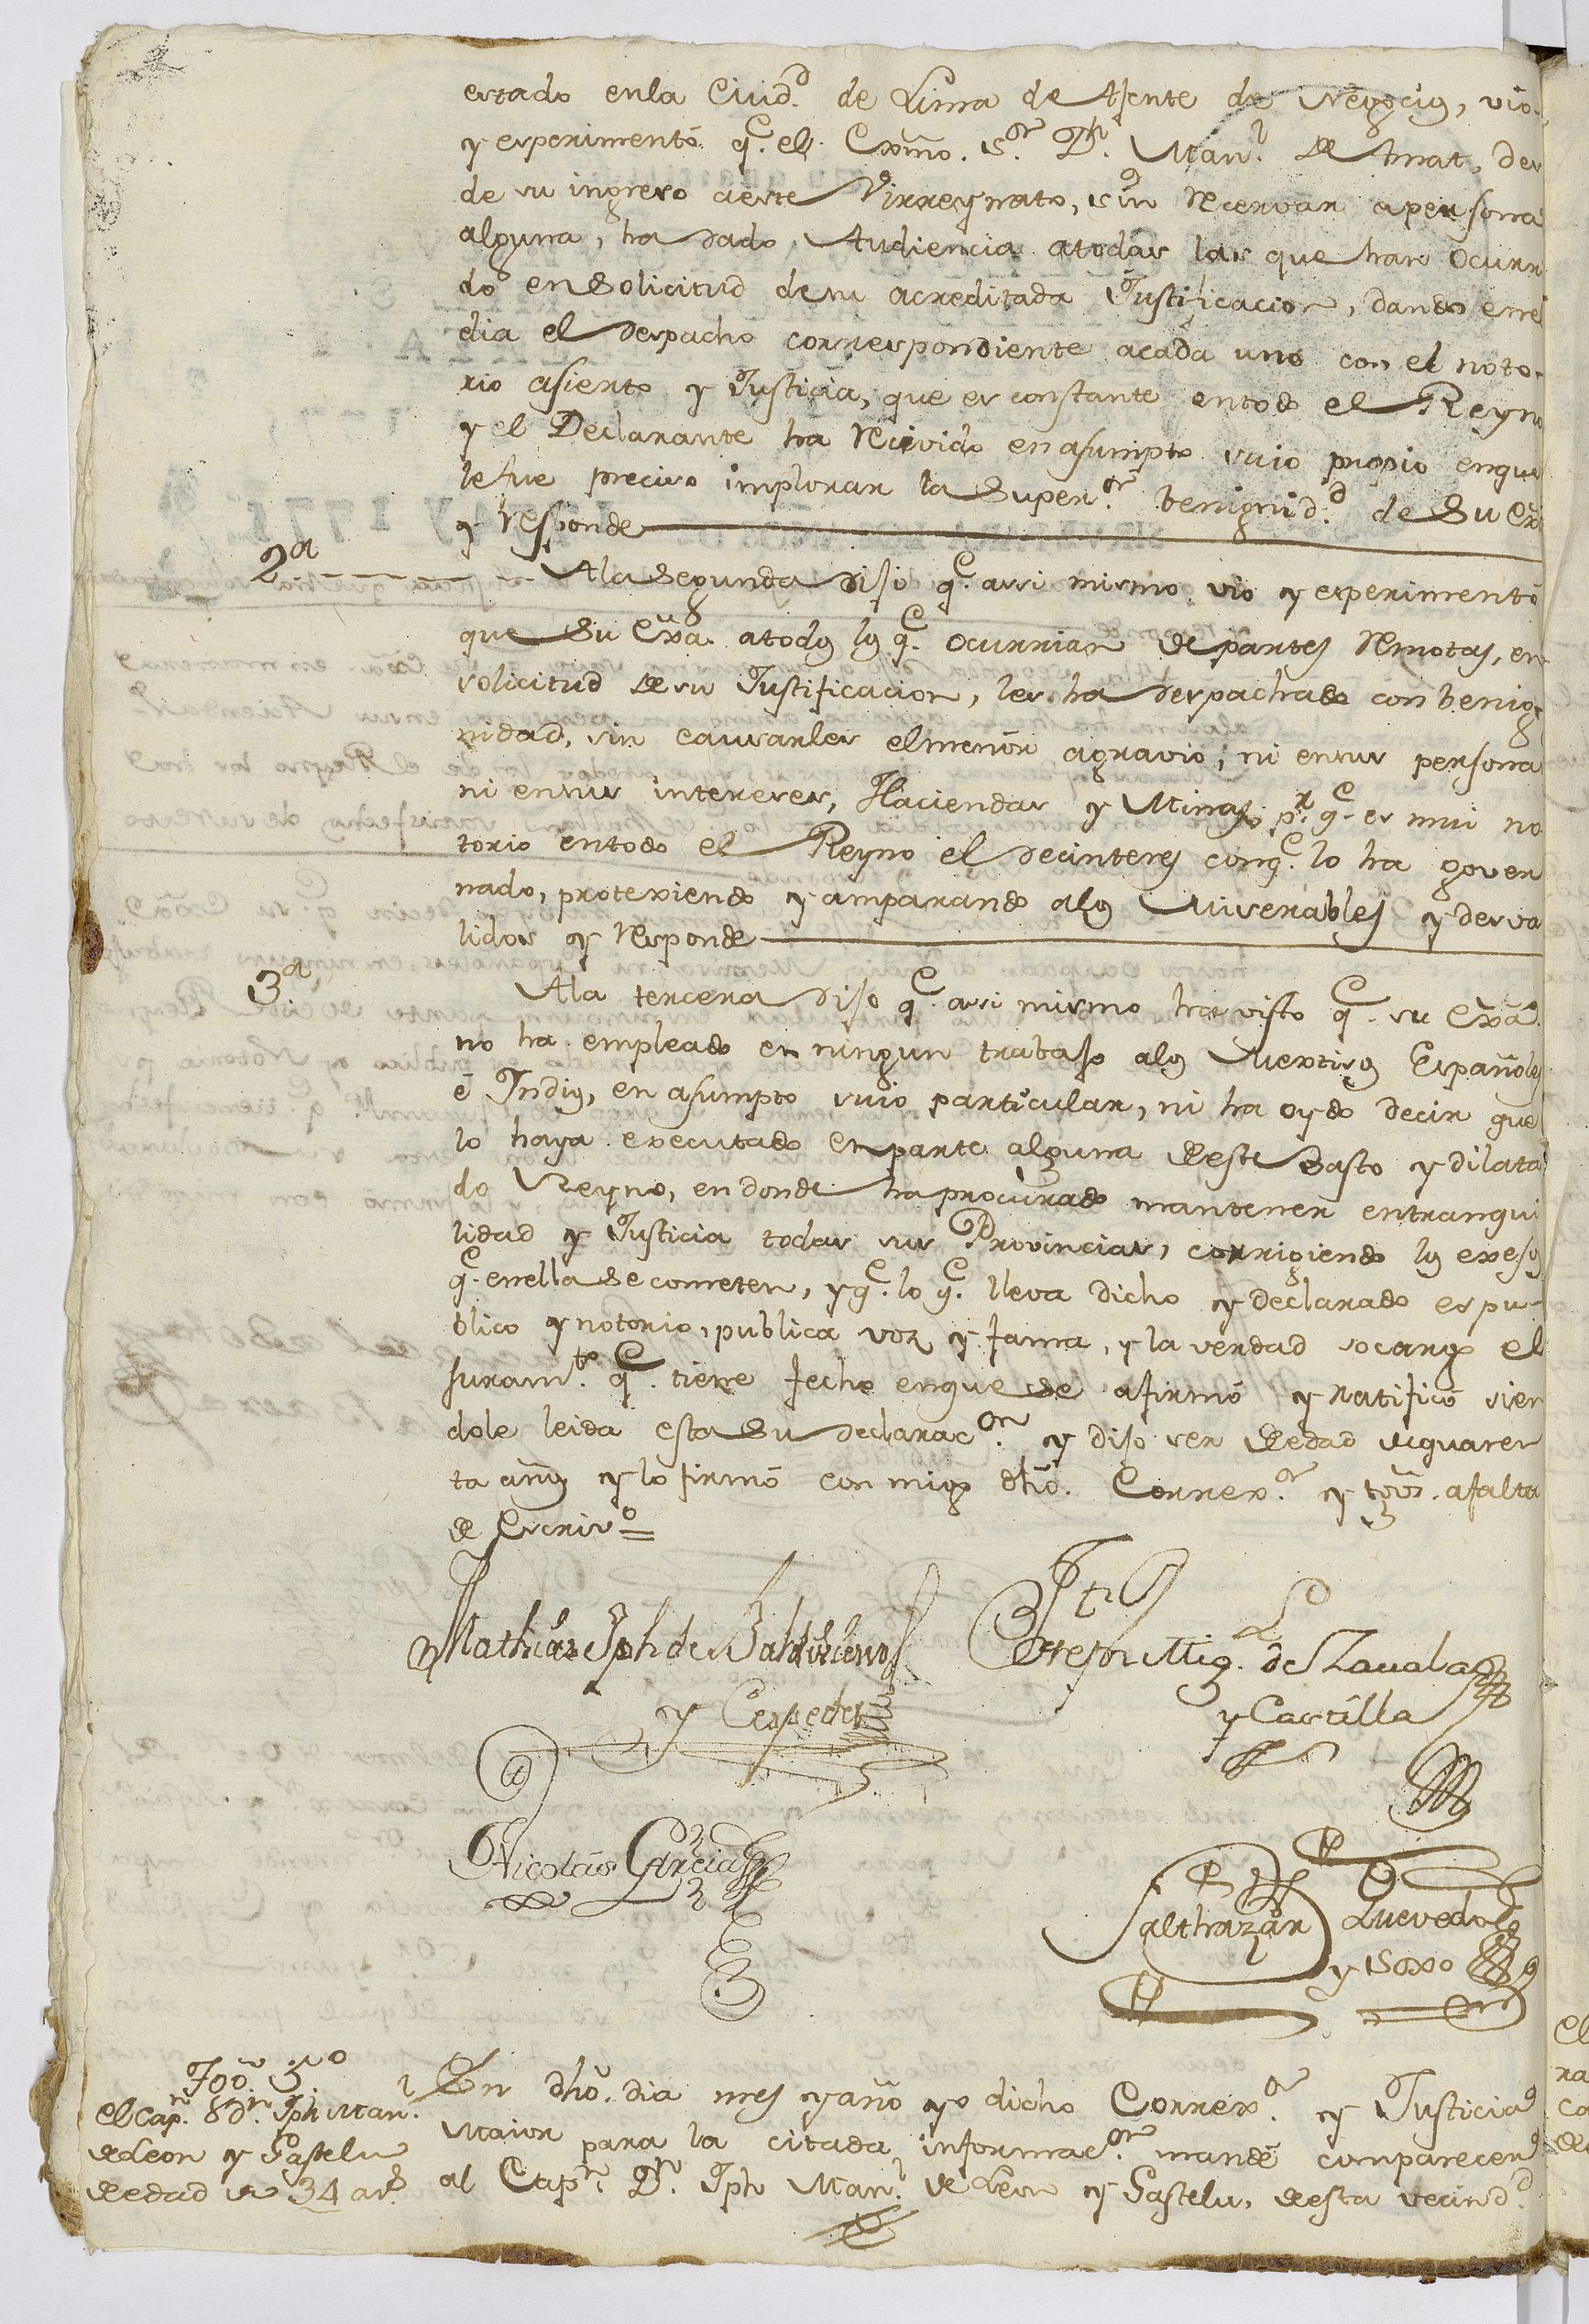 estado enla Ciud.d de Lima de Ajente de Negocios, vio
y esperimentó q.e el Exmo. S.or D.n Man.l de Amat, des
de su ingreso aeste Virreynato, sin Recervar apersona
alguna, ha dado Audiencia atodas las que han Ocurri
do ensolicitud desu acreditada Justificacion, dando enel
dia el despacho correspondiente acada uno con el noto-
rio asierto y Justicia, que es constante entodo el Reyno
y el Declarante ha Recivido en asumpto suio propio enque
lefue preciso implorar la Super.or benignid.d de Su Exa
y Responde
2a Ala Segunda dijo q.e assi mismo vio y esperimentó
que Su Exa. atodos los q.e ocurrian de partes Remotas, en
solicitud de su Justificacion, les ha despachado con benig-
nidad, sin causarles elmenor agravio, ni ensus persona
ni ensus intereses, Haciendas y Minas, p.r q.e es mui no
torio entodo el Reyno el decinteres conq.e lo ha gover
nado, protexiendo y amparando alos Miserables y desva
lidos y Responde
3a Ala tercera dijo q.e assi mismo ha visto q.e su Exa.
no ha empleado en ningun trabajo alos Mextisos Españoles
é Indios, en asumpto suio particular, ni ha oydo decir que
lo haya executado enparte alguna deste Basto y dilata
do Reyno, en donde ha procurado mantener entranqui
lidad y Justicia todas sus Provincias, corrigiendo los exesos
q.e enella se cometen, y q.e lo q.e lleva dicho y declarado es pu-
blico y notorio, publica voz y fama, y la verdad socargo el
Juram.to q.e tiene fecho enque se afirmó y ratificó sien
dole leida esta su declarac.on y dijo ser de edad de quaren
ta años y lo firmó con migo dho. Correx.or y tgos. afalta
de Escriv.o
Mathias Jph de Baldivieso
y Cespedes
Mig.l de Zavala
y Castilla
Nicolás Garcia
Balthazar Quevedo
y Soxo
Tgo. 3o
El Cap.n D.n Jph Man.l
de Leon y Gastelu
de edad de 34 as.
En dho. dia mes y año yo dicho Correx.or y Justicia
Maior para la citada informac.on mandé comparecer
al Cap.n D.n Jph Man.l de Leon y Gastelu, desta vecind.d